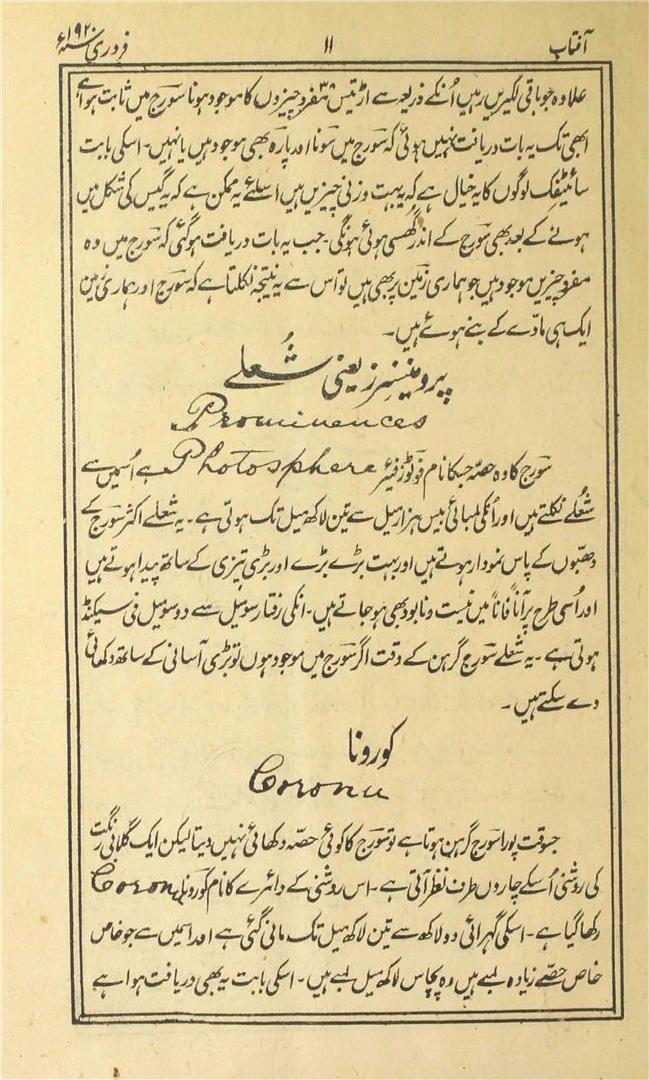 آفتاب ۱۱ فروری سنہ ۱۹۲۰ء
علاوہ جو باقی لکیریں رہیں اُنکے ذریعہ سے اڑتیس ۳۸ مفرد چیزوں کا موجود ہونا سورج میں ثابت ہوا ہے
ابھی تک یہ بات دریافت نہیں ہوئی کہ سورج میں سونا اور پارہ بھی موجود ہیں یا نہیں۔ اسکی بابت
سائنٹفک لوگوں کا یہ خیال ہے کہ یہ بہت وزنی چیزیں ہیں اسلئے یہ ممکن ہے کہ یہ گیس کی شکل میں
ہونے کے بعد بھی سورج کے اندر گھسی ہوئی ہونگی۔ جب یہ بات دریافت ہو گئی کہ سورج میں وہ
مفرد چیزیں موجود ہیں جو ہماری زمین پر بھی ہیں تو اس سے یہ نتیجہ نکلتا ہے کہ سورج اور ہماری زمین
ایک ہی مادّے کے بنے ہوئے ہیں۔
پرومینسنرز یعنی شُعلے
Prominences
سورج کا وہ حصّہ جسکا نام فوٹوزفیئر Photosphere ہے اُسمیں سے
شُعلے نکلتے ہیں اور اُنکی لمبائی بیس ہزار میل سے تین لاکھ میل تک ہوتی ہے۔ یہ شعلے اکثر سورج کے
دھبّوں کے پاس نمودار ہوتے ہیں اور بہت بڑے بڑے اور بڑی تیزی کے ساتھ پیدا ہوتے ہیں
اور اُسی طرح پر آناً فاناً میں نیست و نابود بھی ہو جاتے ہیں۔ انکی رفتار سو میل سے دو سو میل فی سیکنڈ
ہوتی ہے۔ یہ شعلے سورج گرہن کے وقت اگر سورج میں موجود ہوں تو بڑی آسانی کے ساتھ دکھائی
دے سکتے ہیں۔
کورونا
Corona
جسوقت پورا سورج گرہن ہوتا ہے تو سورج کا کوئی حصّہ دکھائی نہیں دیتا لیکن ایک گلابی رنگت
کی روشنی اُسکے چاروں طرف نظر آتی ہے۔ اس روشنی کے دائرے کا نام کورونا Corona
رکھا گیا ہے۔ اسکی گہرائی دو لاکھ سے تین لاکھ میل تک مانی گئی ہے اور اسمیں سے جو خاص
خاص حصّے زیادہ لمبے ہیں وہ پچاس لاکھ میل لمبے ہیں۔ اسکی بابت یہ بھی دریافت ہوا ہے